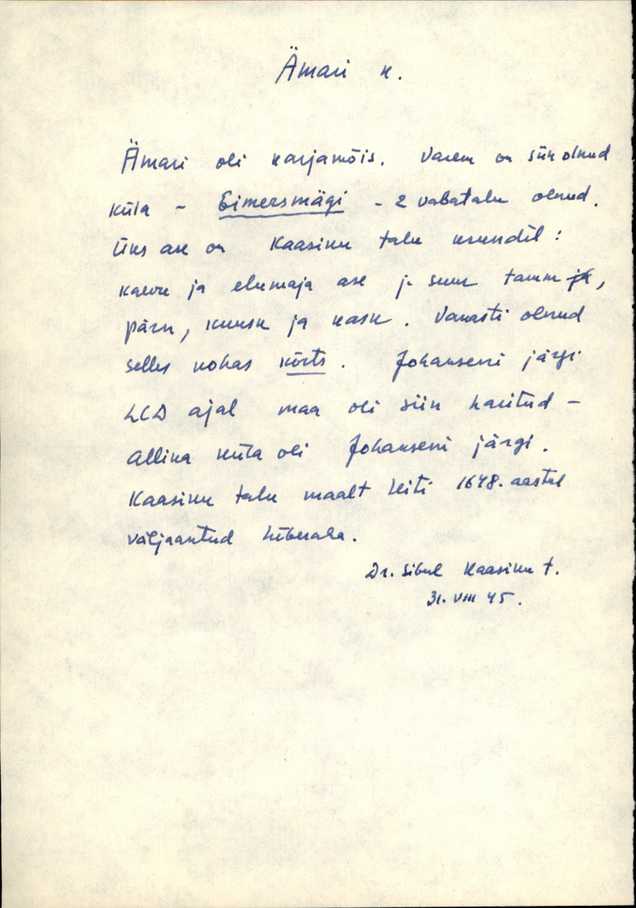 Ämari k.
Ämari oli karjamõis. Varem on siin olnud
küla - Eimersmägi - 2 vabatalu olnud.
Üks ase on Kaasiku talu krundil:
kaevu ja elumaja ase j. suur tamm ja,
pärn, kuusk ja kask. Vanasti olnud
selles kohas kõrts. Johanseni järgi
LCD ajal maa oli siin haritud -
Allika küla oli Johanseni järgi.
Kaasiku talu maalt leiti 1648. aastal
väljaantud hõberaha.
Dr. Sibul Kaasiku t.
31. VIII 45.